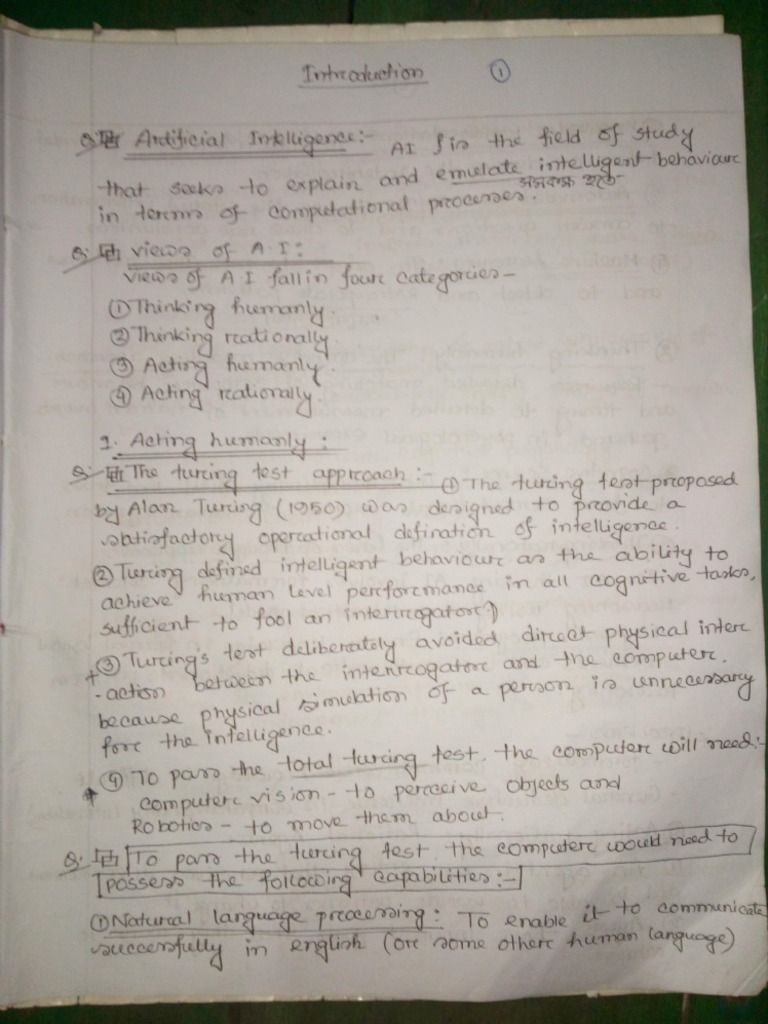 Introduction ①
Q: Artificial Intelligence:- AI is the field of study
that seeks to explain and emulate intelligent behaviour
in terms of computational processes.
Q: Views of A.I:
Views of A I fall in four categories-
① Thinking humanly.
② Thinking rationally.
③ Acting humanly.
④ Acting rationally.
1. Acting humanly:
Q: The turing test approach:- ① The turing test proposed
by Alan Turing (1950) was designed to provide a
satisfactory operational defination of intelligence.
② Turing defined intelligent behaviour as the ability to
achieve human level performance in all cognitive tasks,
sufficient to fool an interrogator)
③ Turing's test deliberately avoided direct physical inter
-action between the interrogator and the computer.
because physical simulation of a person is unnecessary
for the intelligence.
④ To pass the total turing test. the computer will need:-
computer vision - to perceive objects and
Robotics - to move them about.
Q: To pass the turing test. the computer would need to
possess the following capabilities:-
① Natural language processing: To enable it to communicate
successfully in english (or some other human language)